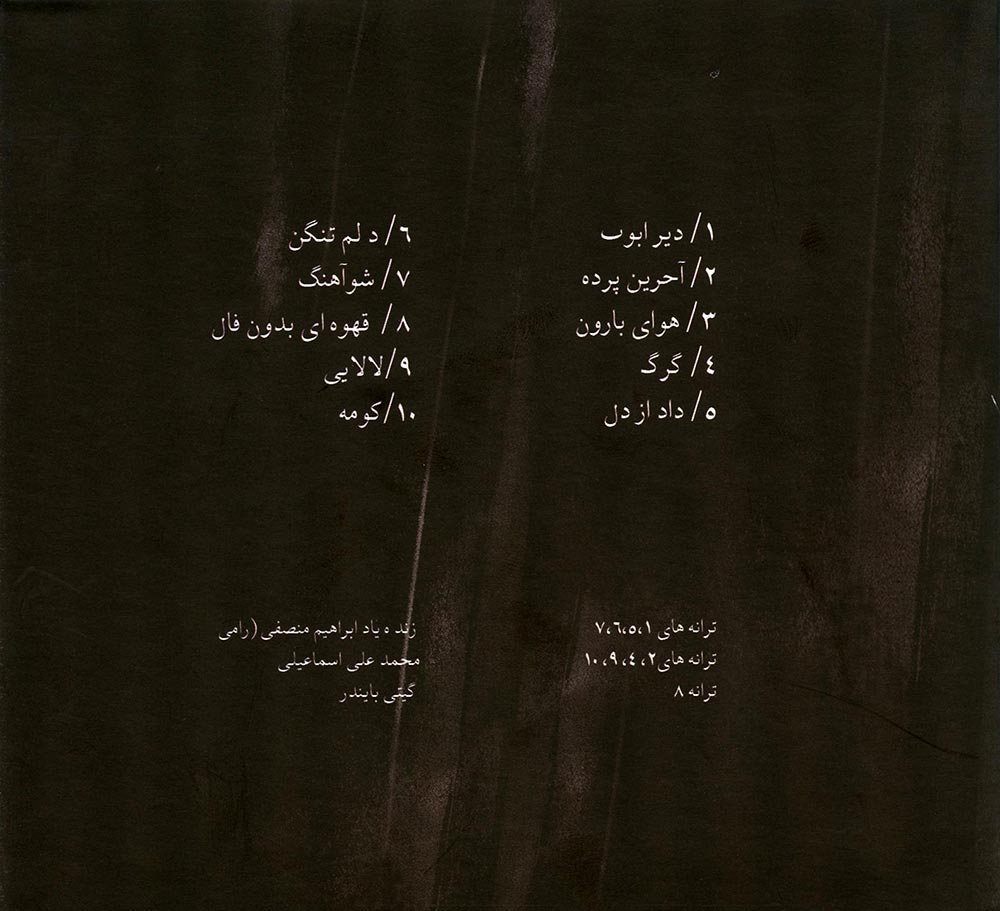 ۱/ دیر ابوت
۲/ آخرین پرده
۳/ هوای بارون
٤/ گرگ
۵/ داد از دل
٦/ د لم تنگن
۷/ شوآهنگ
۸/ قهوه ای بدون فال
۹/لالایی
۱۰/کومه
ترانه های ۷،٦،۵،۱ زند ه یاد ابراهیم منصفی(رامی
ترانه های۲، ٤، ۹، ۱۰ محمد علی اسماعیلی
ترانه ۸ گیتی بایندر